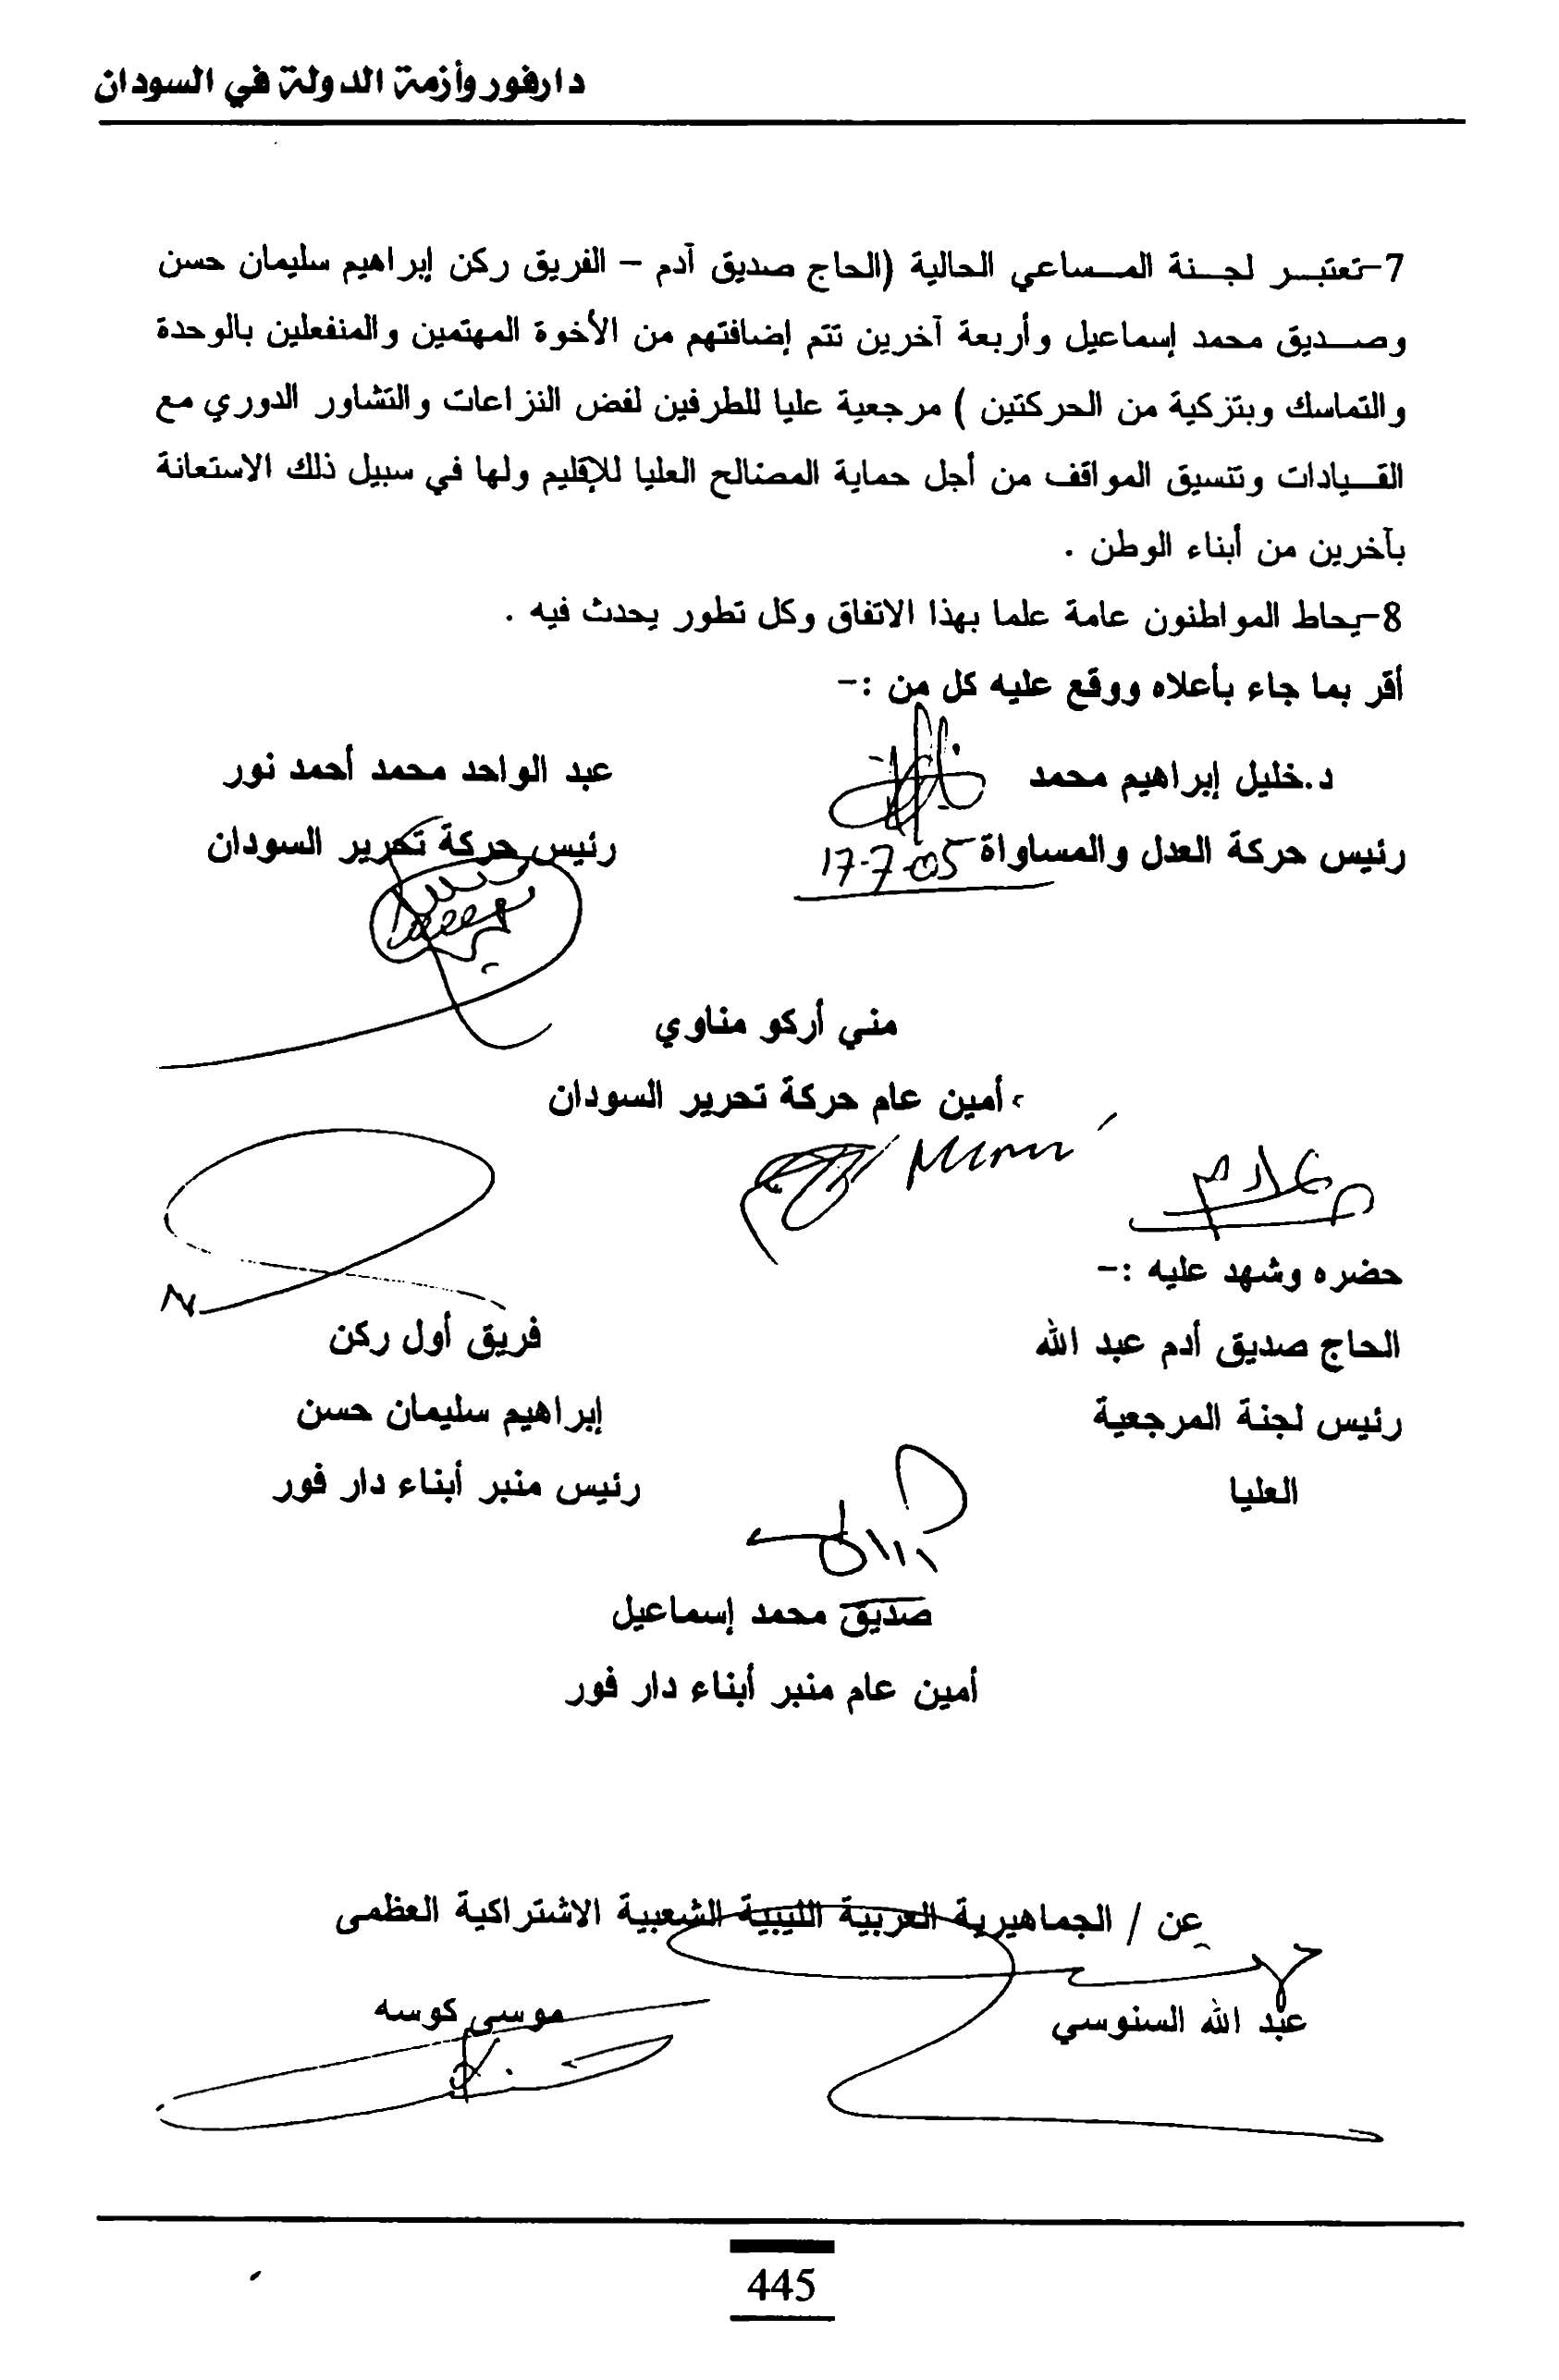 دارفور وأزمة الدولة في السودان
7-تعتبر لجنة المساعي الحالية (الحاج صديق آدم – الفريق ركن إبراهيم سليمان حسن
وصديق محمد إسماعيل وأربعة آخرين تتم إضافتهم من الأخوة المهتمين والمنفعلين بالوحدة
والتماسك وبتزكية من الحركتين ) مرجعية عليا للطرفين لفض النزاعات والتشاور الدوري مع
القيادات وتنسيق المواقف من أجل حماية المصالح العليا للإقليم ولها في سبيل ذلك الاستعانة
بآخرين من أبناء الوطن .
8-يحاط المواطنون عامة علما بهذا الاتفاق وكل تطور يحدث فيه .
أقر بما جاء بأعلاه ووقع عليه كل من :-
د.خليل إبراهيم محمد
رئيس حركة العدل والمساواة
17-7-05
عبد الواحد محمد أحمد نور
رئيس حركة تحرير السودان
مني أركو مناوي
أمين عام حركة تحرير السودان
حضره وشهد عليه :-
الحاج صديق أدم عبد الله
رئيس لجنة المرجعية
العليا
فريق أول ركن
إبراهيم سليمان حسن
رئيس منبر أبناء دار فور
صديق محمد إسماعيل
أمين عام منبر أبناء دار فور
عن / الجماهيرية العربية الليبية الشعبية الاشتراكية العظمى
عبد الله السنوسي
موسى كوسه
445